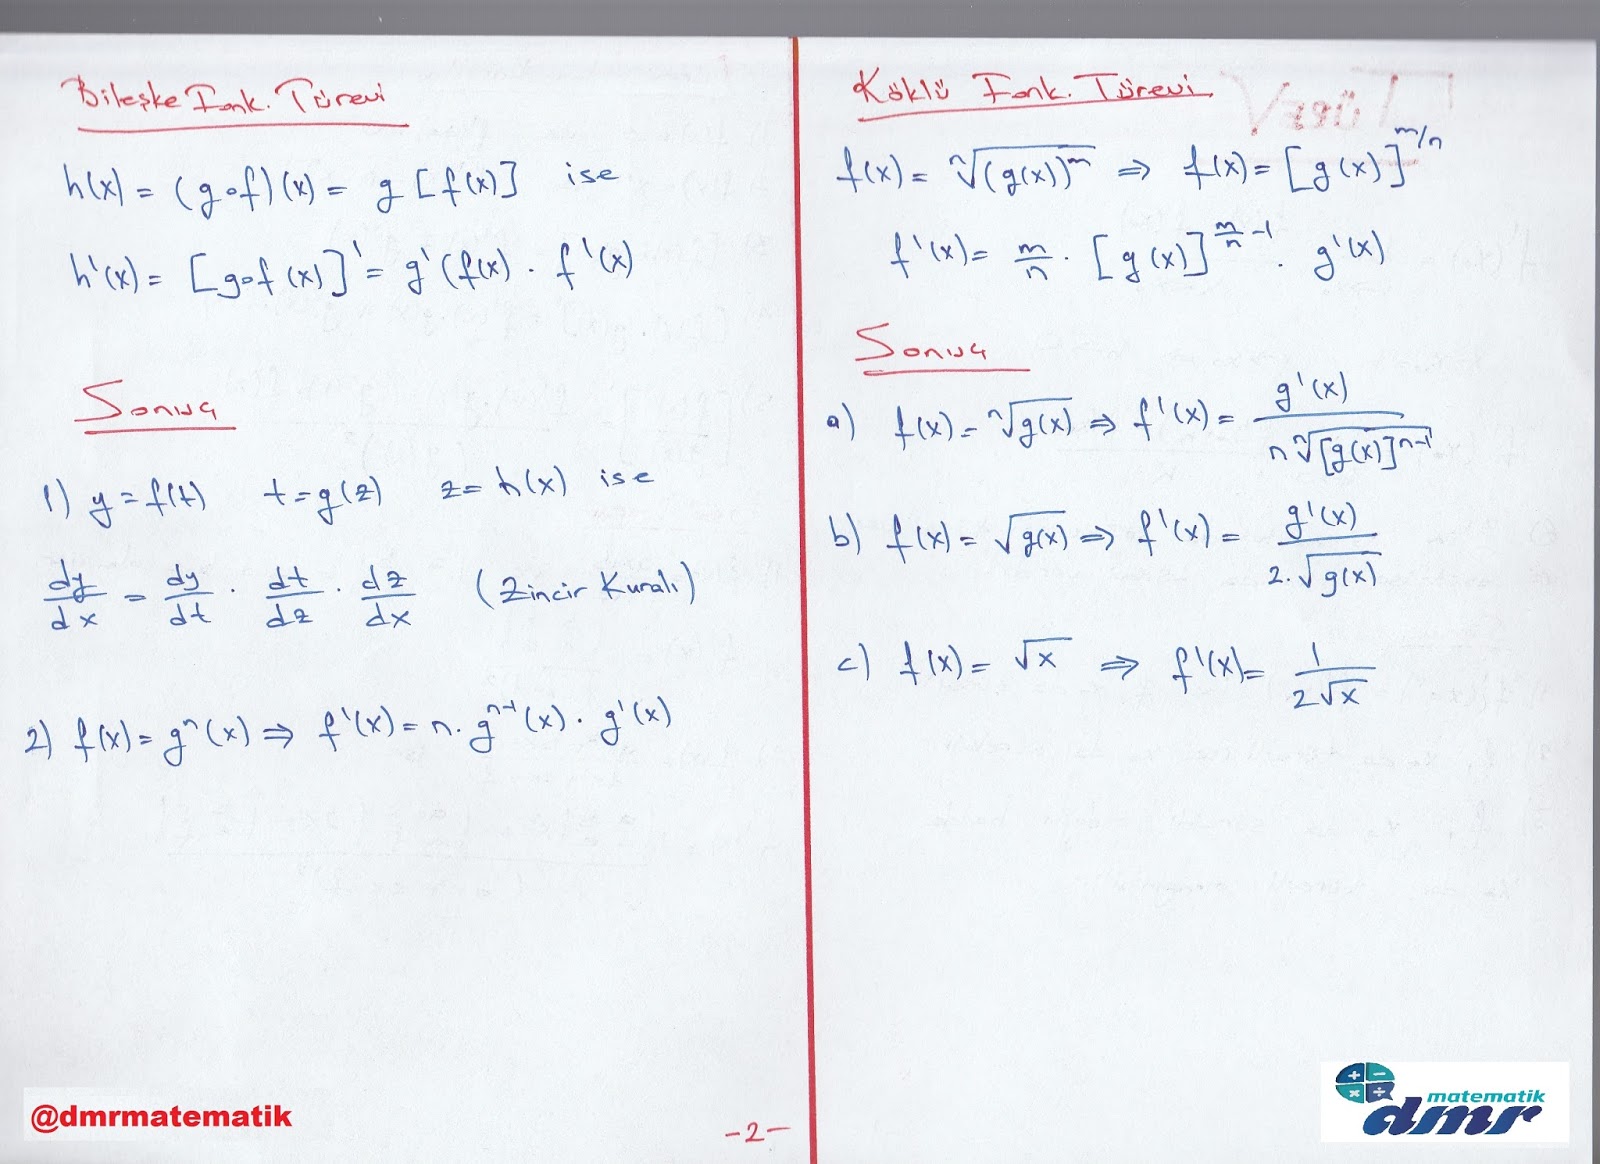 Bileşke Fonk. Türevi
h(x) = (gof)(x) = g[f(x)] ise
h'(x) = [gof(x)]' = g'(f(x) . f'(x)
Sonuç
1) y = f(t) t = g(z) z = h(x) ise
dy/dx = dy/dt . dt/dz . dz/dx (Zincir Kuralı)
2) f(x) = gⁿ(x) ⇒ f'(x) = n. gⁿ⁻¹(x) . g'(x)
@dmrmatematik
Köklü Fonk. Türevi
f(x) = ⁿ√(g(x))ᵐ ⇒ f(x) = [g(x)]^m/n
f'(x) = m/n . [g(x)]^(m/n -1) . g'(x)
Sonuç
a) f(x) = ⁿ√g(x) ⇒ f'(x) = g'(x) / n ⁿ√[g(x)]ⁿ⁻¹
b) f(x) = √g(x) ⇒ f'(x) = g'(x) / 2.√g(x)
c) f(x) = √x ⇒ f'(x) = 1 / 2√x
-2-
matematik
dmr